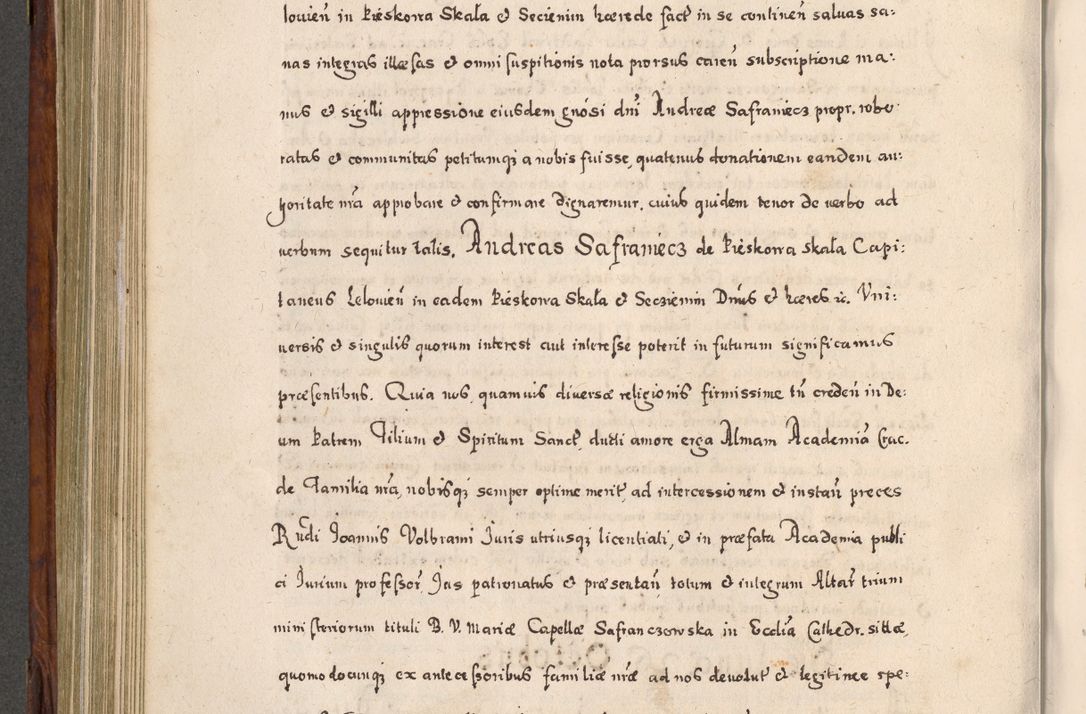 louień in Pieskowa Skała & Secienim hærede fact in se continen̄ saluas sa:
nas integras illæsas & omni suspitionis nota prorsus caren̄ subscriptione ma:
nus & sigilli appressione eiusdem gnosi dni Andreæ Safraniecz propr. robo:
ratas & communitas petitumqꝫ a nobis fuisse, quatenus donationem eandem au:
thoritate nrā approbare & confirmare dignaremur. cuius quidem tenor de verbo ad
verbum sequitur talis. Andreas Safraniecz de Pieskowa skała Capi:
taneus Lelovien̄ in eadem Pieskowa Skała & Seczienim Dn̄us & hæres ꝛc. Vni:
versis & singulis quorum interest aut interesse poterit in futurum significamus
præsentibus. Quia nos, quamuis diversæ religionis firmissime tn̄ creden̄ in De:
um Patrem Filium & Spiritum Sanct, ducti amore erga Almam Academiā Crac.
de Familia nrā, nobisqꝫ semper optime merit, ad intercessionem & instan̄ preces
Rn̄di Joannis Volbrami Juris utriusqꝫ licentiati, & in præfata Academia publi
ci Jurium professor, Jus patronatus & præsentan̄ totum & integrum Altar trium
ministeriorum tituli B. V. Mariæ Capellæ Safranczowska in Ecclīa Cathedr. sittæ,
quomodocunqꝫ ex antecessoribus familiæ nræ ad nos devolut & legitime spe: